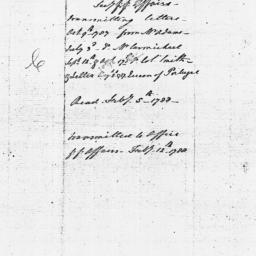 Sec.y f.n Affairs
transmitting letters
Oct 9th 1787 from Mr Adams
July 3d Do Mr Carmichael
Sept 12th & Oct Col Smith
& letter Queen of Portugal
Read Feby 5th 1788
transmitted to Office
f.n Affairs Feby 12th 1788